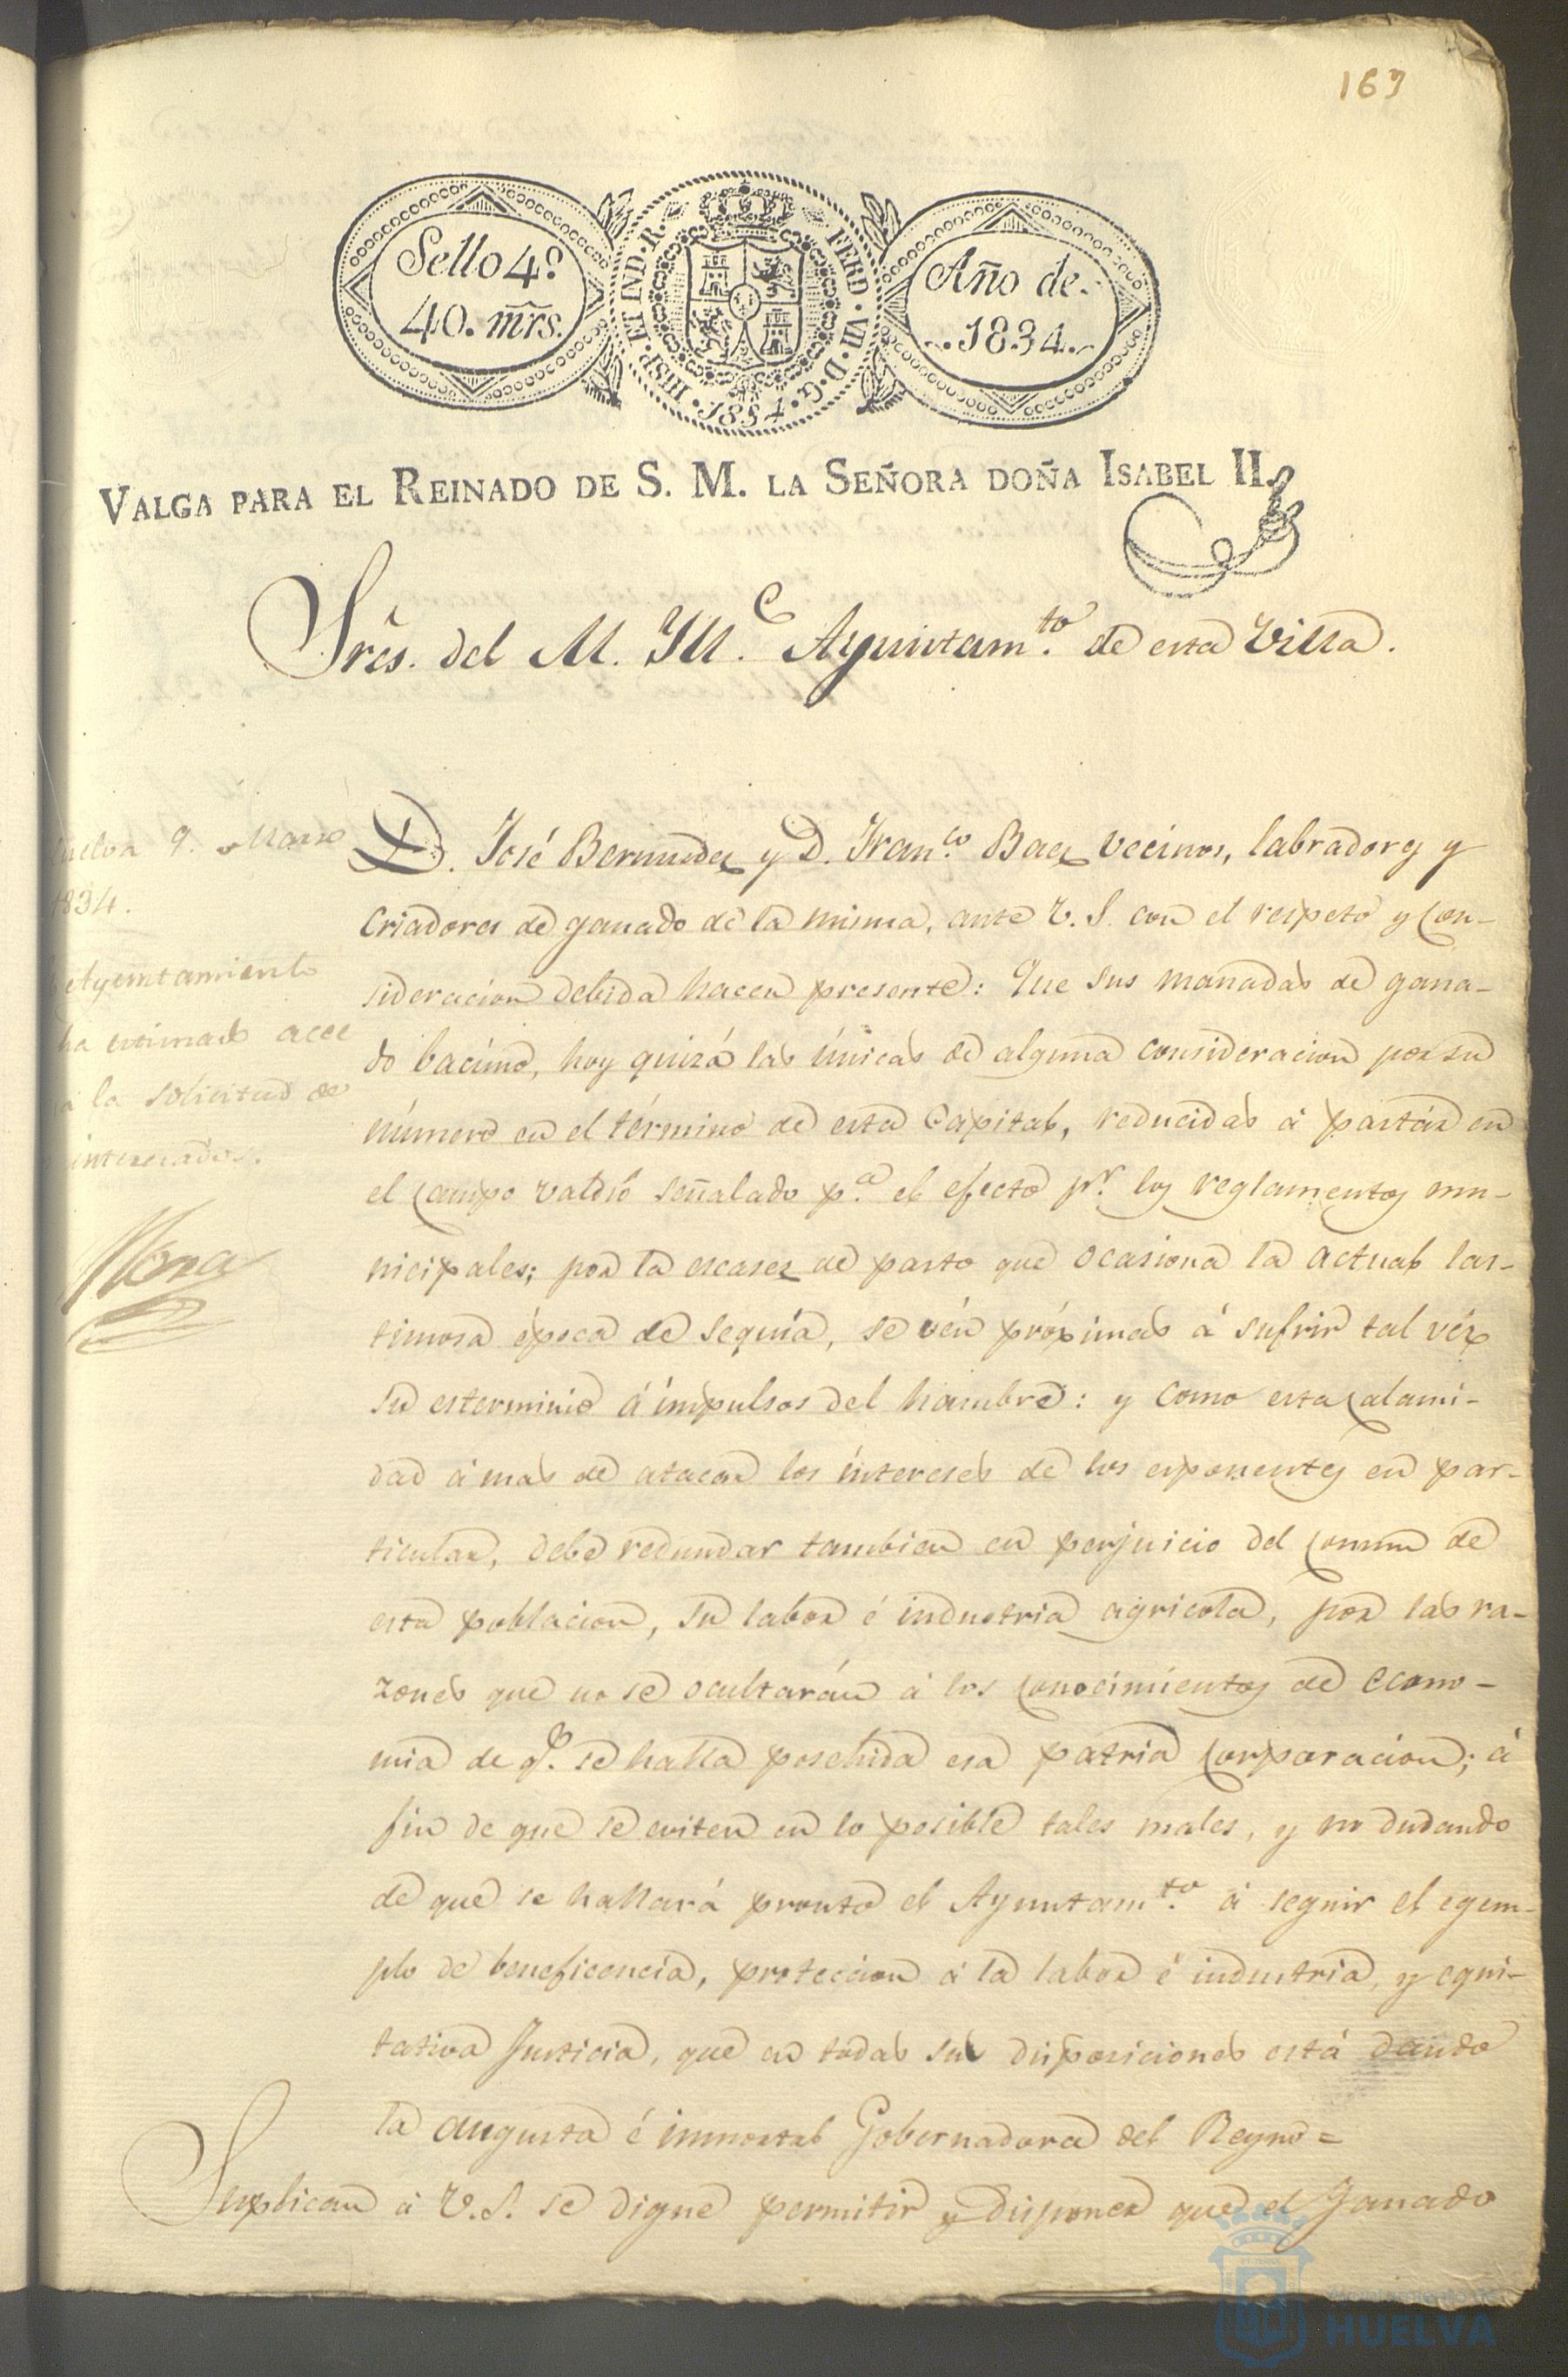 169
Sello 4º
40. mrs.
HISP. ET IND. R. FERD. VII. D. G. 1834.
Año de
1834.
VALGA PARA EL REINADO DE S. M. LA SEÑORA DOÑA ISABEL II.
Sres. del M. Yll.e Ayuntam.to de esta Villa.
Huelva 9. Marzo
1834.
Ayuntamiento
ha acce
à la solicitud de
interesados.
Mora
D. José Bermudez y D. Fran.co Baez vecinos, labradores y
criadores de ganado de la misma, ante V. S. con el respeto y con-
sideracion debida hacen presente: Que sus manadas de gana-
do bacuno, hoy quizá las únicas de alguna consideracion por su
número en el término de esta Capital, reducidas á pastár en
el campo valdío señalado p.a el efecto p.r los reglamentos mu-
nicipales; por la escasez de pasto que ocasiona la actual las-
timosa época de sequía, se vén próximas á sufrir tal véz
su esterminio á impulsos del hambre: y como esta calami-
dad á mas de atacar los intereses de los esponentes en par-
ticular, debe redundar tambien en perjuicio del comun de
esta poblacion, su labor é industria agricola, por las ra-
zones que no se ocultarán á los conocimientos de econo-
mia de q.e se halla posehida esa patria corporacion; á
fin de que se eviten en lo posible tales males, y no dudando
de que se hallará pronto el Ayuntam.to á seguir el egem-
plo de beneficencia, proteccion á la labor é industria, y equi-
tativa Justicia, que en todas sus disposiciones está dando
la augusta é inmortal Gobernadora del Reyno=
Suplican á V. S. se digne permitir y disponer que el Ganado
HUELVA